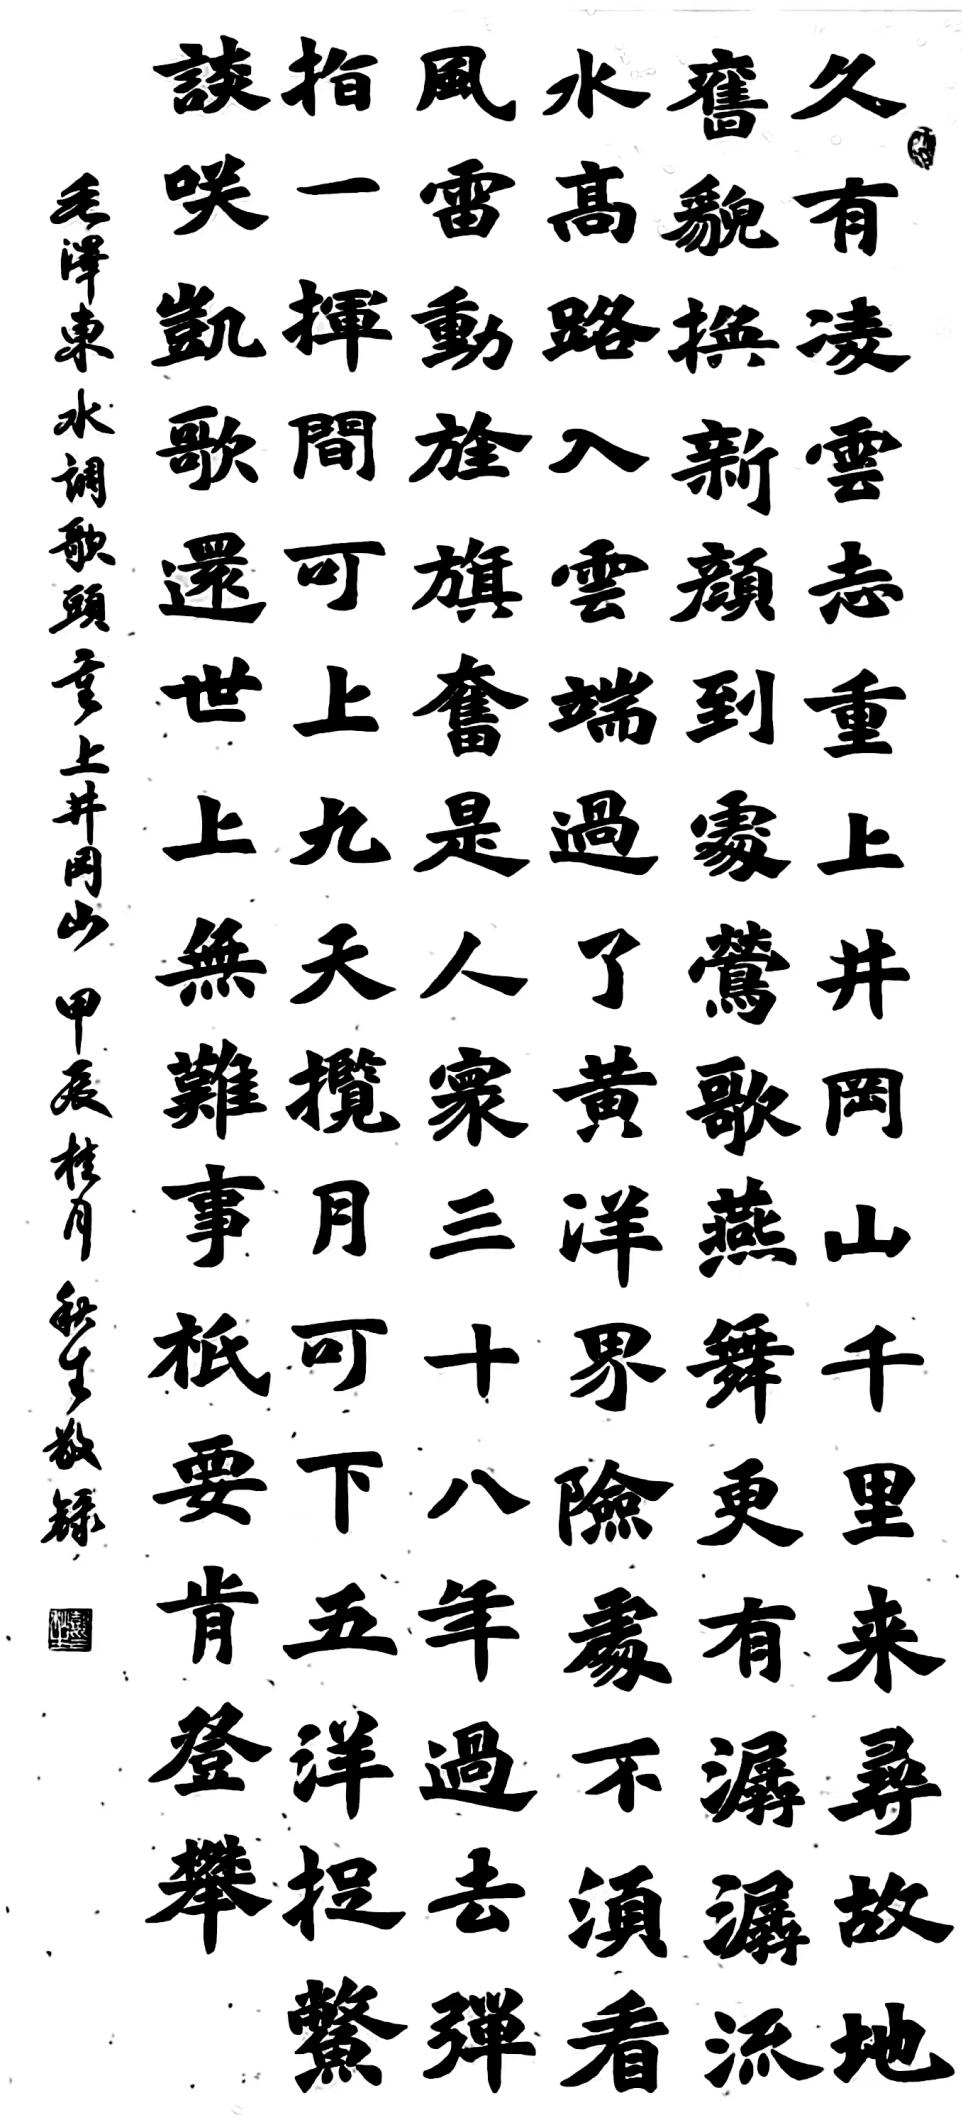 久有凌雲志重上井岡山千里来尋故地
舊貌換新顔到處鶯歌燕舞更有潺潺流
水髙路入雲端過了黃洋界險處不湏看
風雷動旌旗奮是人寰三十八年過去彈
指一揮間可上九天攬月可下五洋捉鱉
談咲凱歌還世上無難事祇要肯登攀
毛澤東水調歌頭重上井岡山 甲辰桂月秋生敬録